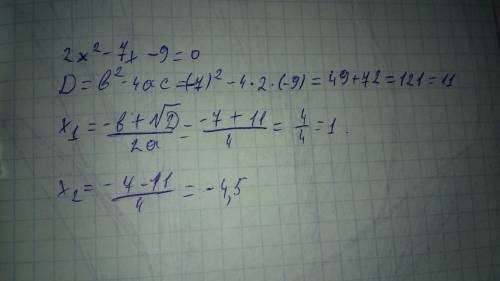 2x² - 7x - 9 = 0
D = b² - 4ac = (-7)² - 4·2·(-9) = 49 + 72 = 121 = 11
x₁ = (-b + √D)/(2a) = (-7 + 11)/4 = 4/4 = 1.
x₂ = (-4 - 11)/4 = -4,5